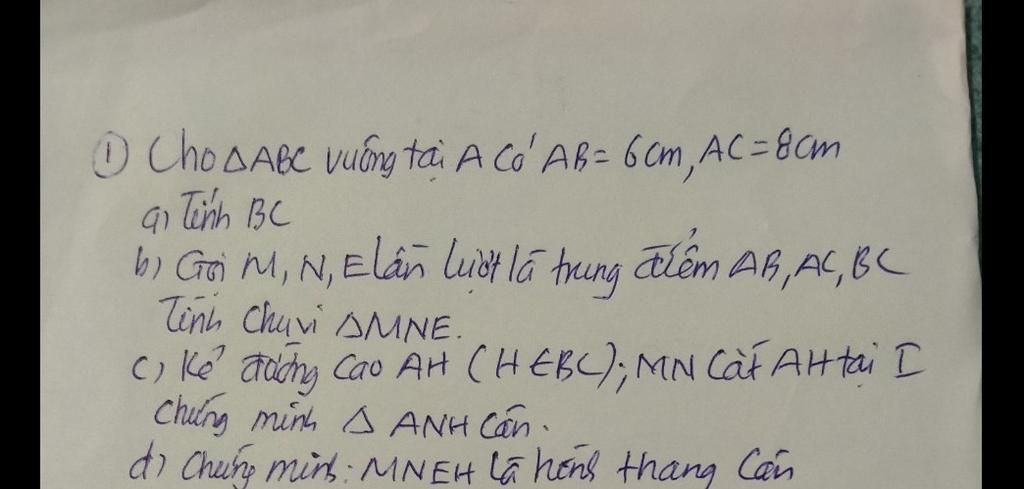 ① Cho △ABC vuông tại A có AB = 6cm, AC = 8cm
a) Tính BC
b) Gọi M, N, E lần lượt là trung điểm AB, AC, BC
Tính chu vi △MNE.
c) Kẻ đường cao AH (H ∈ BC); MN cắt AH tại I
chứng minh △ ANH cân.
d) Chứng minh: MNEH là hình thang cân